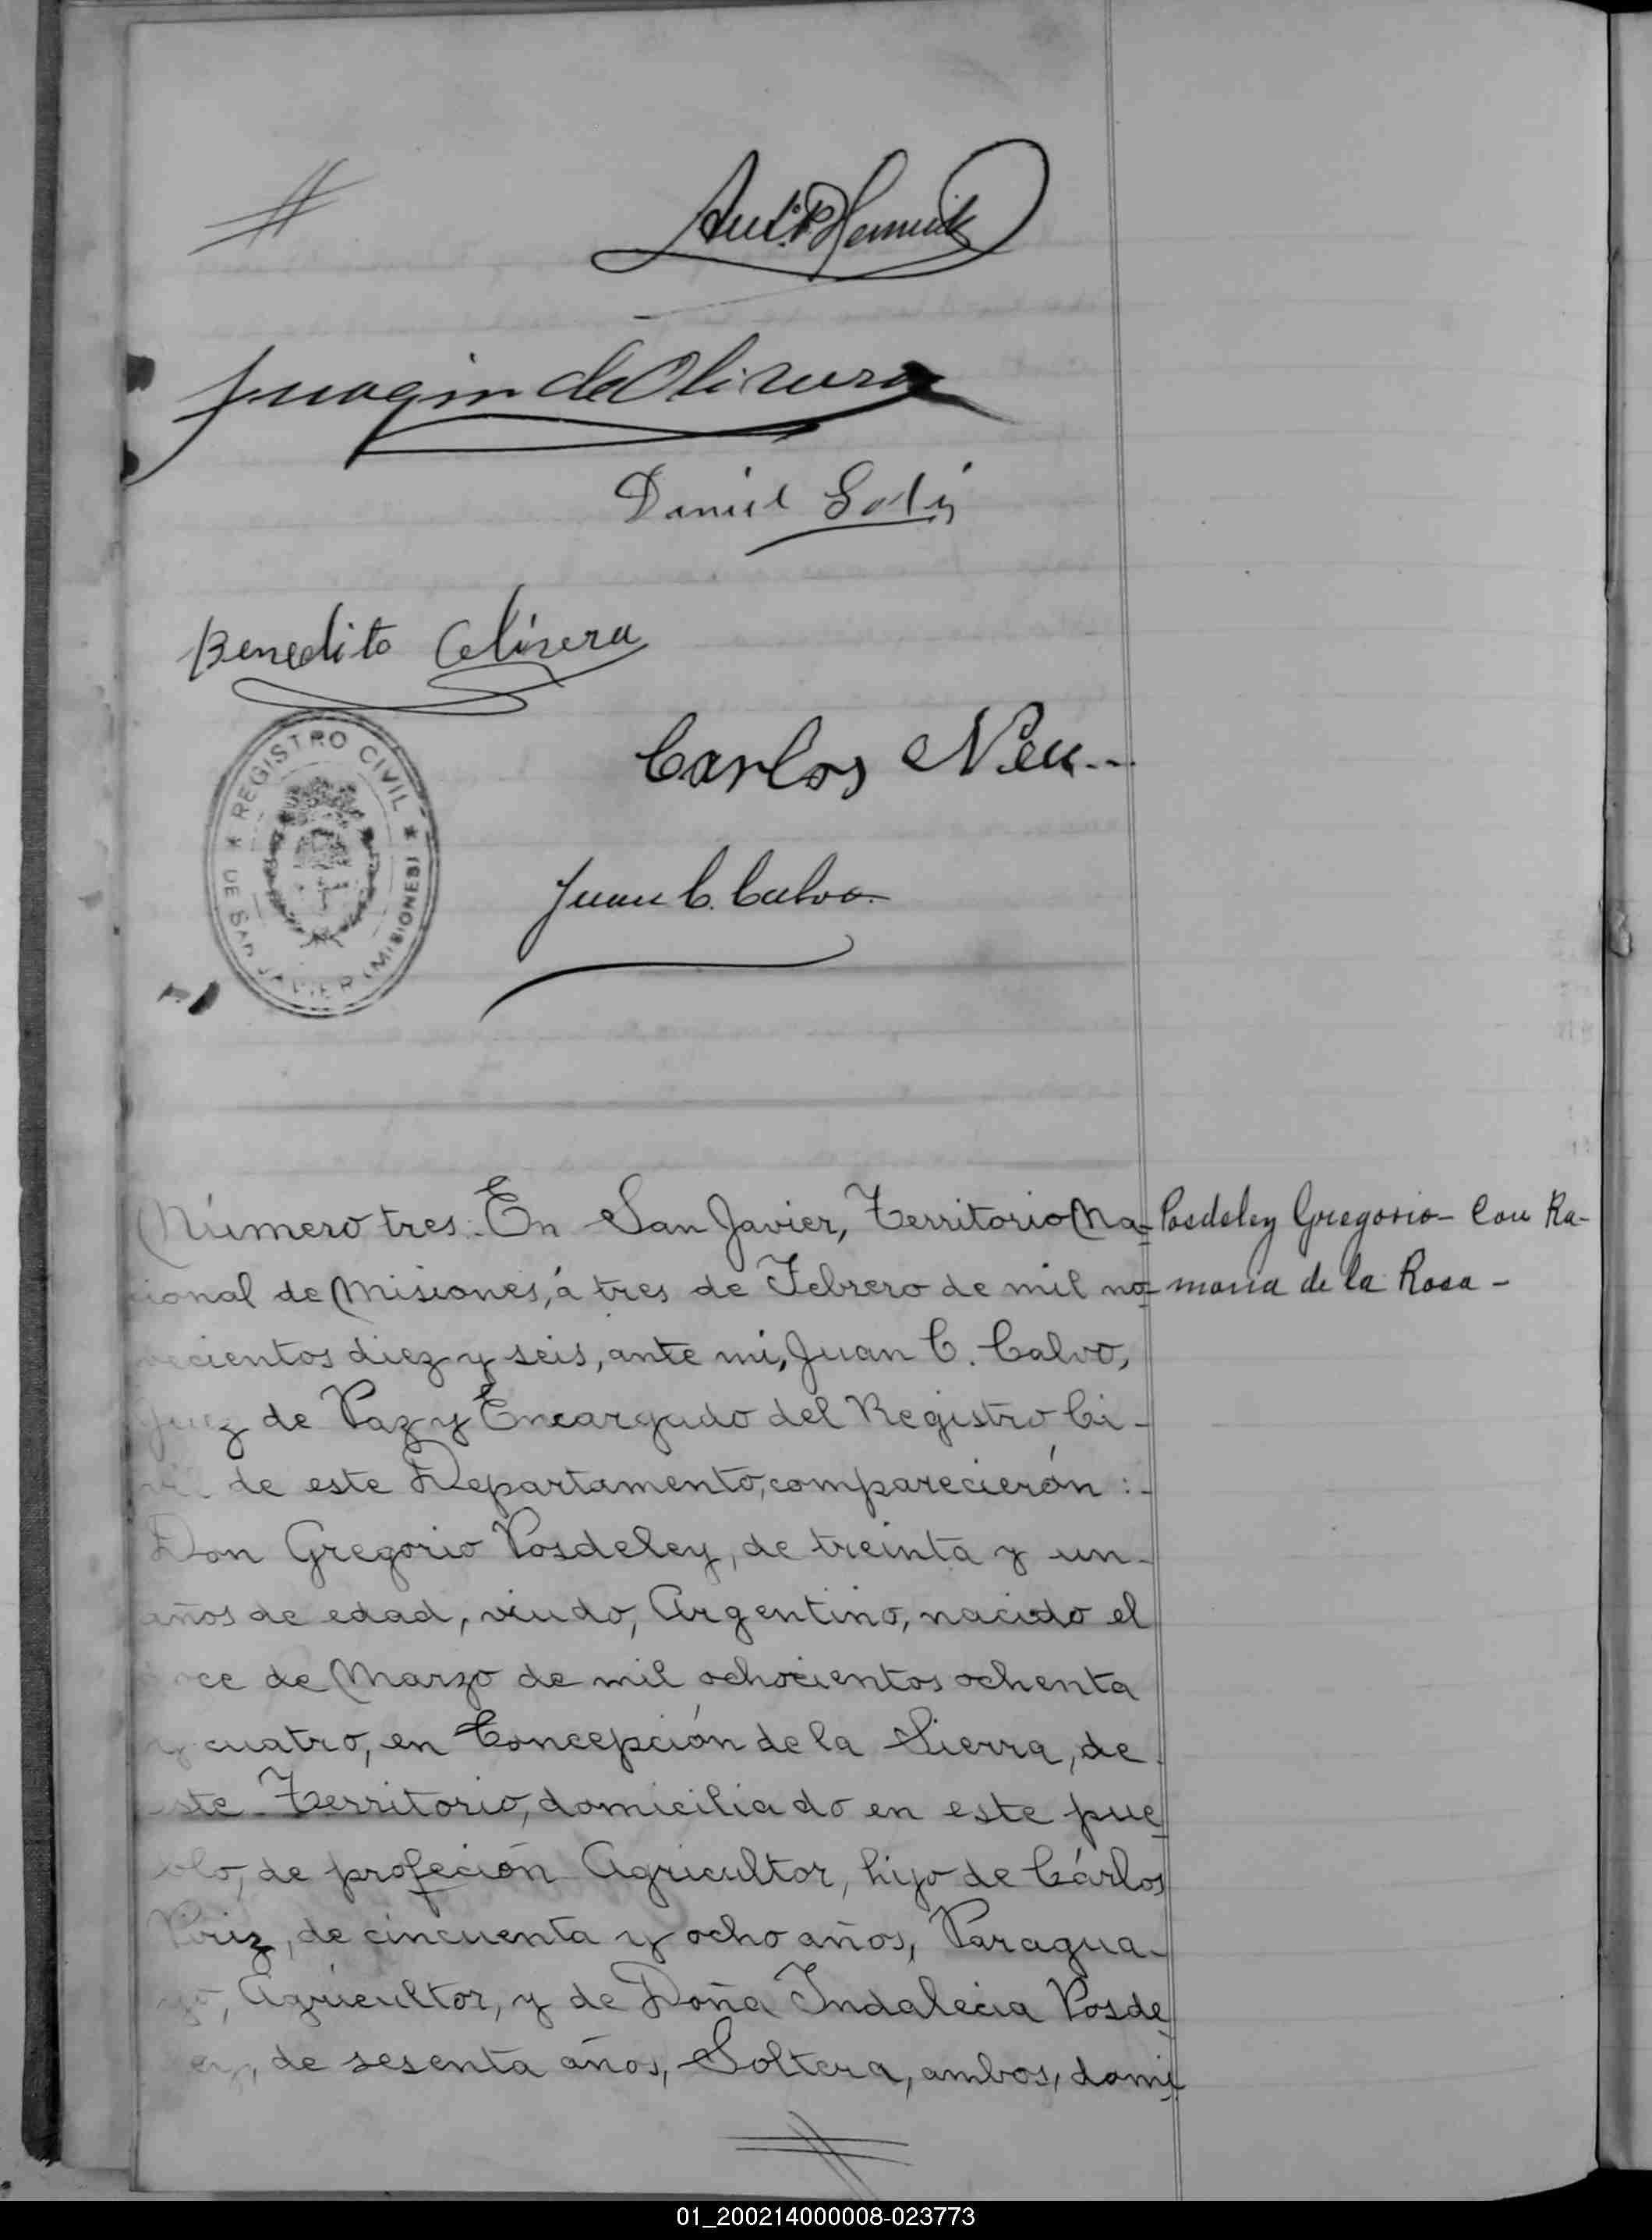 Joaquin de Olivera
Daniel
Benedito Olivera
REGISTRO CIVIL
DE SAN JAVIER (MISIONES)
Carlos Neu
Juan C. Calvo.
Número tres. En San Javier, Territorio Na- Posdeley Gregorio - Con Ra-
cional de Misiones, á tres de Febrero de mil no- mona de la Rosa -
vecientos diez y seis, ante mi, Juan C. Calvo,
Juez de Paz y Encargado del Registro Ci-
vil de este Departamento, comparecierón :-
Don Gregorio Posdeley, de treinta y un-
años de edad, viudo, Argentino, nacido el
de Marzo de mil ochocientos ochenta
y cuatro, en Concepción de la Sierra, de
este Territorio, domiciliado en este pue-
blo, de profeción Agricultor, hijo de Cárlos
Piriz, de cincuenta y ocho años, Paragua-
yo, Agricultor, y de Doña Indalecia Posde-
ley, de sesenta años, Soltera, ambos, domi-
01_200214000008-023773